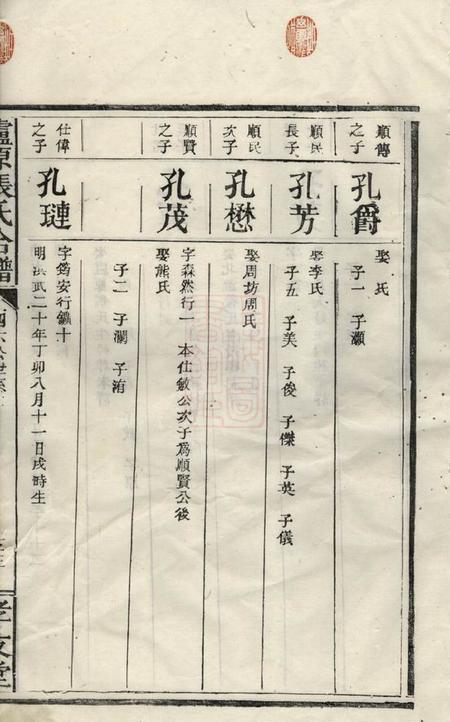 順傅
之子
孔爵
娶 氏
子一 子灝
順民
長子
孔芳
娶李氏
子五 子美 子俊 子傑 子英 子儀
順民
次子
孔懋
娶周坊周氏
順賢
之子
孔茂
字森然行一 本仕敏公次子為順賢公後
娶熊氏
子二 子瀾 子洧
仕偉
之子
孔璉
字筠安行鑛十
明洪武二十年丁卯八月十一日戌時生
原張氏合譜
孝友堂